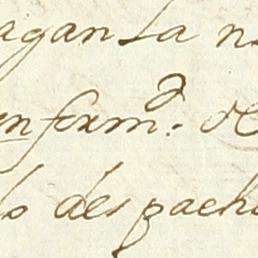 agan la n
enform.ᵈ de
lo despacho